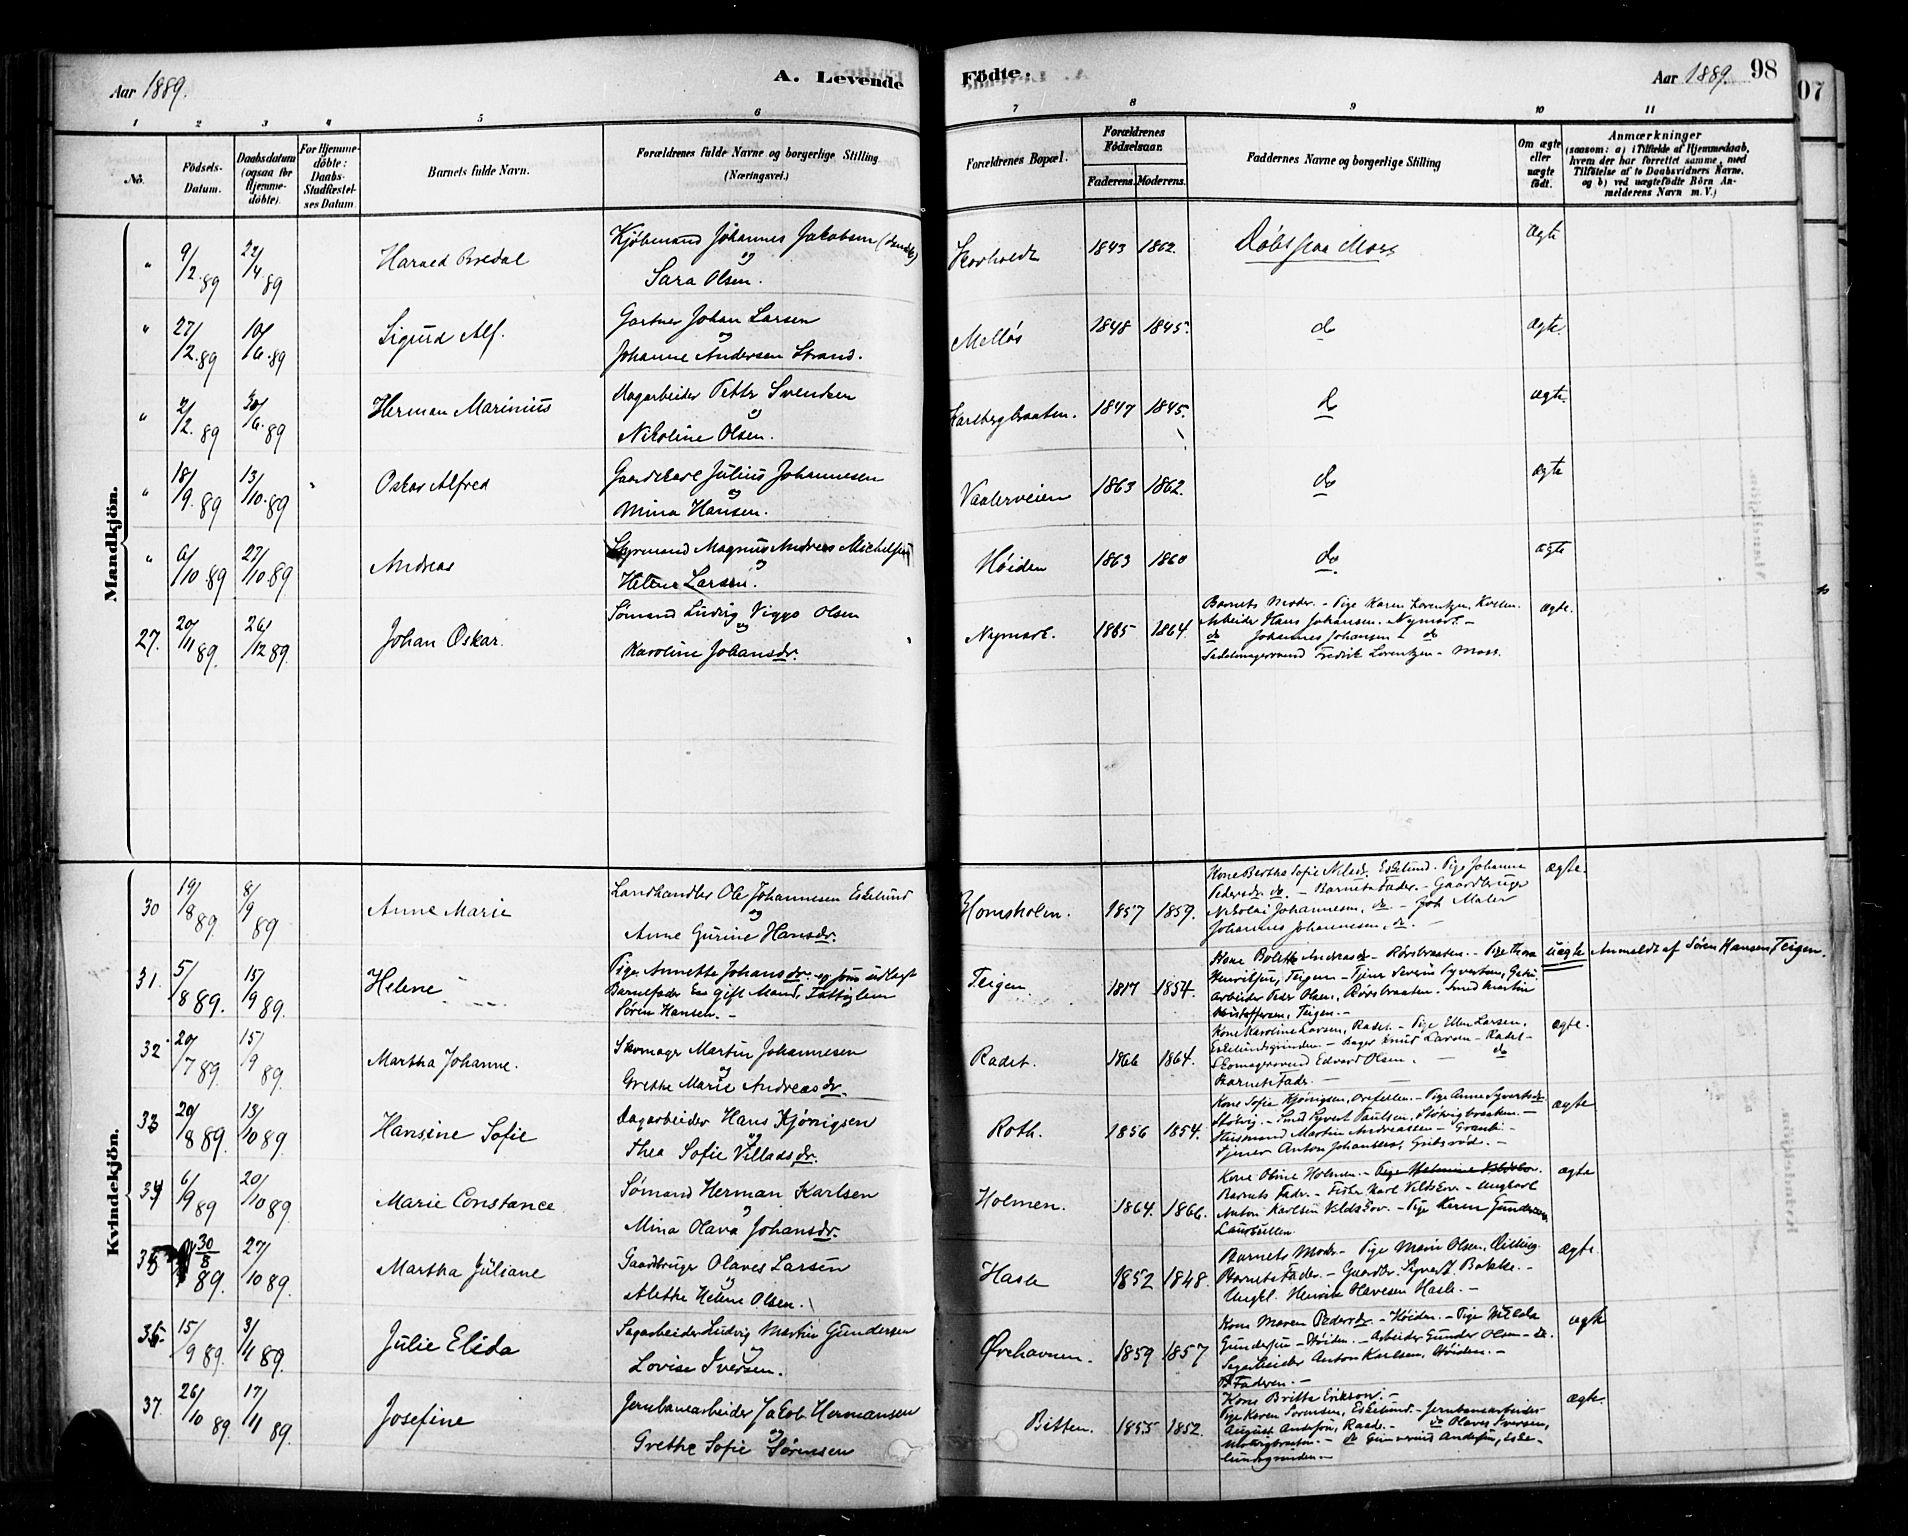 Aar 1889.
A. Levende
Födte.
Aar 1889.
98
07
1 2 3 4 5 6 7 8 9 10 11
No.
Födsels-Datum.
Daabsdatum (ogsaa for Hjemme-døbte).
For Hjemme-døbte: Daabs-Stadfæstel-ses Datum.
Barnets fulde Navn.
Forældrenes fulde Navne og borgerlige Stilling (Næringsvei.)
Forældrenes Bopæl.
Forældrenes Födselsaar.
Faderens.
Moderens.
Faddernes Navne og borgerlige Stilling
Om ægte eller uægte født.
Anmærkninger
(saasom: a) i Tilfælde af Hjemmedaab, hvem der har forrettet samme, med Tilføielse af to Daabsvidners Navne, og b) ved uægtefödte Börn Anmelderens Navn m. V.)
Mandkjön.
" 9/2.89 22/4 89 Harald Bredal Kjøbmand Johannes Jakobsen
og
Sara Olsen. 1843 1862. Døbt paa Moss ægte
" 27/2.89 10/6.89 Sigurd Alf. Gartner Johan Larsen
og
Johanne Andersen Strand. Melløs 1848 1845. do ægte.
" 2/2.89 30/6.89 Herman Marinius Dagarbeider Petter Svendsen
og
Nikoline Olsen. Karlbergbraaten. 1847 1845. do ægte.
" 18/9.89 13/10.89 Oskar Alfred Gaardskarl Julius Johannesen
og
Mina Hansen. Vaalerveien 1863 1862. do ægte
" 6/10.89 27/10.89 Andreas Styrmand Magnus Andreas Michelsen
og
Helene Larsen. Høiden 1863 1860 do ægte
27. 20/11 89. 26/12 89. Johan Oskar. Sømand Ludvig Viggo Olsen
og
Karoline Johansdr. Nymark. 1865 1864. ægte.
Barnets Moder. - Pige Karen Lorentzen,
Arbeider Hans Johansen. Nymark. -
do Johannes Johansen do
Sadelmagersvend Fredrik Lorentzen - Moss.
Kvindekjön.
30 19/8 89. 8/9 89 Anne Marie Landhandler Ole Johannesen Eskelund
og
Anne Gurine Hansdr. 1857 1859. ægte.
Kone Berthe Sofie Nilsdr. Eskelund. Pige Johanne
Pedersdr. do. - Barnets Fader. - Gaardbruger
Nikolai Johannesen, do. - Maler
Johannes Johannesen, do. -
31. 5/8 89. 15/9 89. Helene Pige Annette Johansdr. og som udlagt
Barnefader En gift Mand,
Søren Hansen. - Teigen. 1817 1854. uægte Anmeldt af Søren Hansen Teigen.
Kone Bolette Andreasdr - Rørsbraaten. - Pige Thea
Henriksen, Teigen - Tjener Severin Syvertsen,
Arbeider Peder Olsen, Rørsbraaten. Smed Martin
Kristoffersen, Teigen. -
32 20/7 89. 15/9 89. Martha Johanne. Skomager Martin Johannesen
og
Grethe Marie Andreasdr. Radet. 1866 1864. ægte.
Kone Karoline Larsen, Radet. - Pige Ellen Larsen,
Eskelundsgrinden. - Bager Knud Larsen - Radet -
Skomagersvend Edvard Olsen. - do
Barnets Fader. -
33 20/8 89. 13/10 89. Hansine Sofie Dagarbeider Hans Kjønigsen
og
Thea Sofie Villadsdr. Roth. 1856 1854. ægte
Kone Sofie Kjønigsen, - Pige Anne Syvertsdr
Støtvig. - Smed Syvert Paulsen, Støtvigbraaten. -
Husmand Martin Andreassen -
Tjener Anton Johansen, -
34 6/9 89 20/10 89. Marie Constance Sømand Herman Karlsen
og
Mina Olava Johansdr. Holmen. 1864. 1866. ægte
Kone Oline Holmen. -
Barnets Fader. - Fisker Karl - Ungkarl
Anton Karlsen - Pige Karen Gundersen
35 30/8 89. 27/10 89. Martha Juliane Gaardbruger Olaves Larsen
og
Alethe Helene Olsen. Hasle 1852 1848. ægte.
Barnets Moder - Pige Marie Olsen,
Barnets Fader. - Gaardbr. Syvert Bakke. -
Ungkl. Henrik Olavesen Hasle. -
36. 15/9 89. 3/11 89. Julie Elida Sagarbeider Ludvig Martin Gundersen
og
Lovise Iversen. Ørehavnen. 1859 1857 ægte
Kone Maren Pedersdr. - Høiden. - Pige
Gundersen - Høiden. - Arbeider Gunder Olsen - do.
Sagarbeider Anton Karlsen, Høiden. -
Faderen. -
37. 26/10 89. 17/11 89. Josefine Jernbanearbeider Jakob Hermansen
og
Grethe Sofie Sørensen Bitten. 1855 1852. ægte.
Kone Britta Erikson. -
Pige Karen Sørensen, Eskelund. - Jernbanearbeider
August Andersen, Raade. - do Olaves Iversen,
do Andersen, Eske-
lundsgrinden -